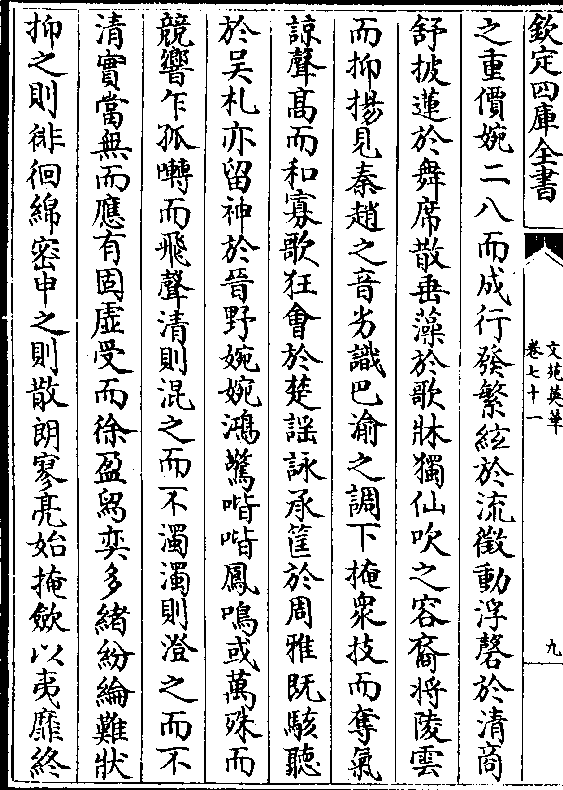 欽定四庫全書
文苑英華
卷七十一
九
之重價婉二八而成行發繁絃於流徵動浮磬於清商
舒披蓮於舞席散垂藻於歌牀獨仙吹之容裔將陵雲
而抑揚見秦趙之音劣識巴渝之調下掩衆技而奪氣
諒聲髙而和寡歌狂㑹於楚謡詠承筐於周雅既駭聽
於吴札亦留神於晉野婉婉鴻驚喈喈鳳鳴或萬殊而
競響乍孤囀而飛聲清則混之而不濁濁則澄之而不
清實當無而應有固虚受而徐盈舄奕多緒紛綸難狀
抑之則徘徊綿密申之則散朗寥亮始掩歛以夷靡終